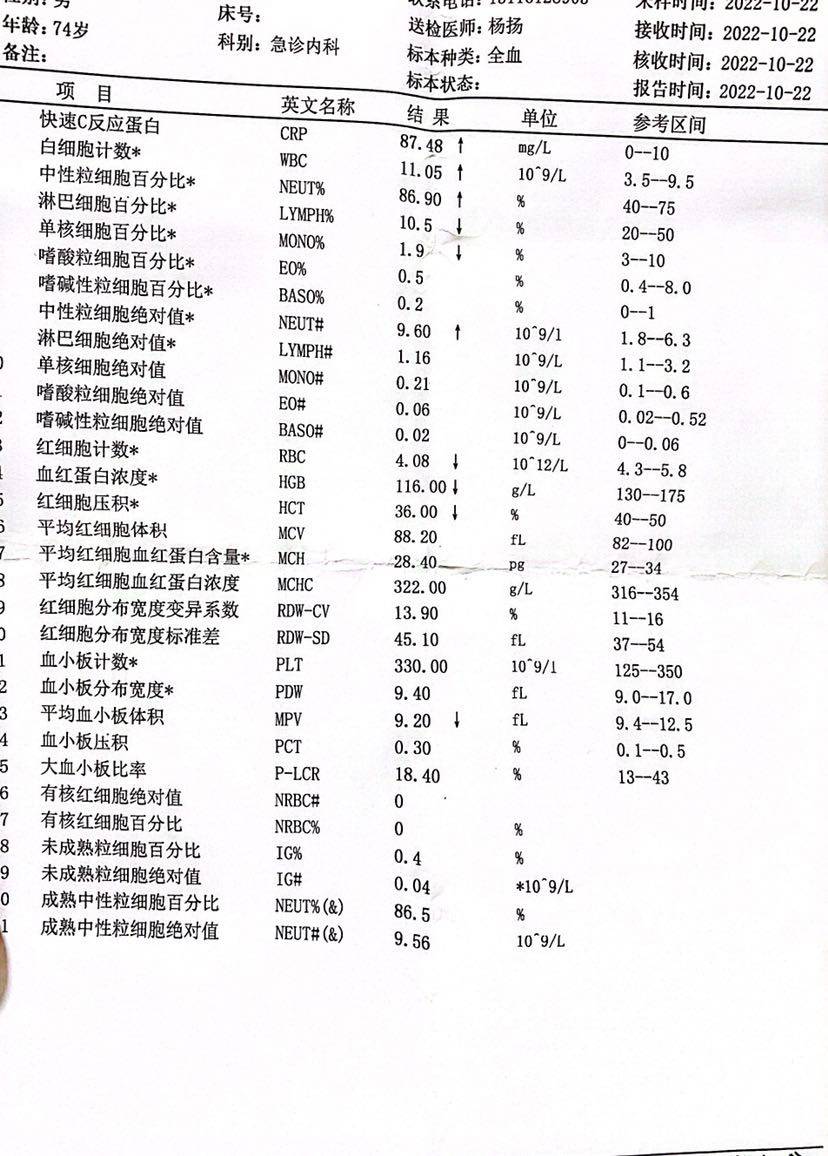 男
年龄: 74岁
备注:
床号:
科别: 急诊内科
送检医师: 杨扬
标本种类: 全血
标本状态:
2022-10-22
接收时间: 2022-10-22
核收时间: 2022-10-22
报告时间: 2022-10-22
项 目 英文名称 结 果 单位 参考区间
快速C反应蛋白 CRP 87.48 ↑ mg/L 0--10
白细胞计数* WBC 11.05 ↑ 10^9/L 3.5--9.5
中性粒细胞百分比* NEUT% 86.90 ↑ % 40--75
淋巴细胞百分比* LYMPH% 10.5 ↓ % 20--50
单核细胞百分比* MONO% 1.9 ↓ % 3--10
嗜酸粒细胞百分比* EO% 0.5 % 0.4--8.0
嗜碱性粒细胞百分比* BASO% 0.2 % 0--1
中性粒细胞绝对值* NEUT# 9.60 ↑ 10^9/l 1.8--6.3
淋巴细胞绝对值* LYMPH# 1.16 10^9/L 1.1--3.2
0 单核细胞绝对值 MONO# 0.21 10^9/L 0.1--0.6
嗜酸粒细胞绝对值 EO# 0.06 10^9/L 0.02--0.52
2 嗜碱性粒细胞绝对值 BASO# 0.02 10^9/L 0--0.06
3 红细胞计数* RBC 4.08 ↓ 10^12/L 4.3--5.8
4 血红蛋白浓度* HGB 116.00↓ g/L 130--175
5 红细胞压积* HCT 36.00 ↓ % 40--50
6 平均红细胞体积 MCV 88.20 fL 82--100
7 平均红细胞血红蛋白含量* MCH 28.40 pg 27--34
8 平均红细胞血红蛋白浓度 MCHC 322.00 g/L 316--354
9 红细胞分布宽度变异系数 RDW-CV 13.90 % 11--16
0 红细胞分布宽度标准差 RDW-SD 45.10 fL 37--54
1 血小板计数* PLT 330.00 10^9/l 125--350
2 血小板分布宽度* PDW 9.40 fL 9.0--17.0
3 平均血小板体积 MPV 9.20 ↓ fL 9.4--12.5
4 血小板压积 PCT 0.30 % 0.1--0.5
5 大血小板比率 P-LCR 18.40 % 13--43
6 有核红细胞绝对值 NRBC# 0
7 有核红细胞百分比 NRBC% 0 %
8 未成熟粒细胞百分比 IG% 0.4 %
9 未成熟粒细胞绝对值 IG# 0.04 *10^9/L
0 成熟中性粒细胞百分比 NEUT%(&) 86.5 %
1 成熟中性粒细胞绝对值 NEUT#(&) 9.56 10^9/L